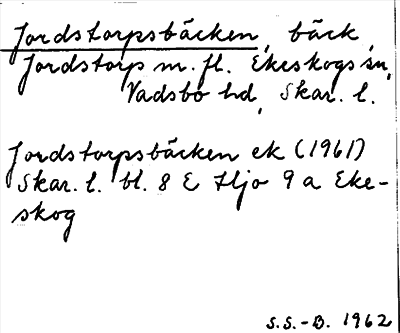 Jordstorpsbäcken, bäck,
Jordstorp m. fl. Ekeskogs sn,
Vadsbo hd, Skar. l.
Jordstorpsbäcken ek (1961)
Skar. l. bl. 8 E Hjo 9 a Eke-
skog
S.S.-B. 1962